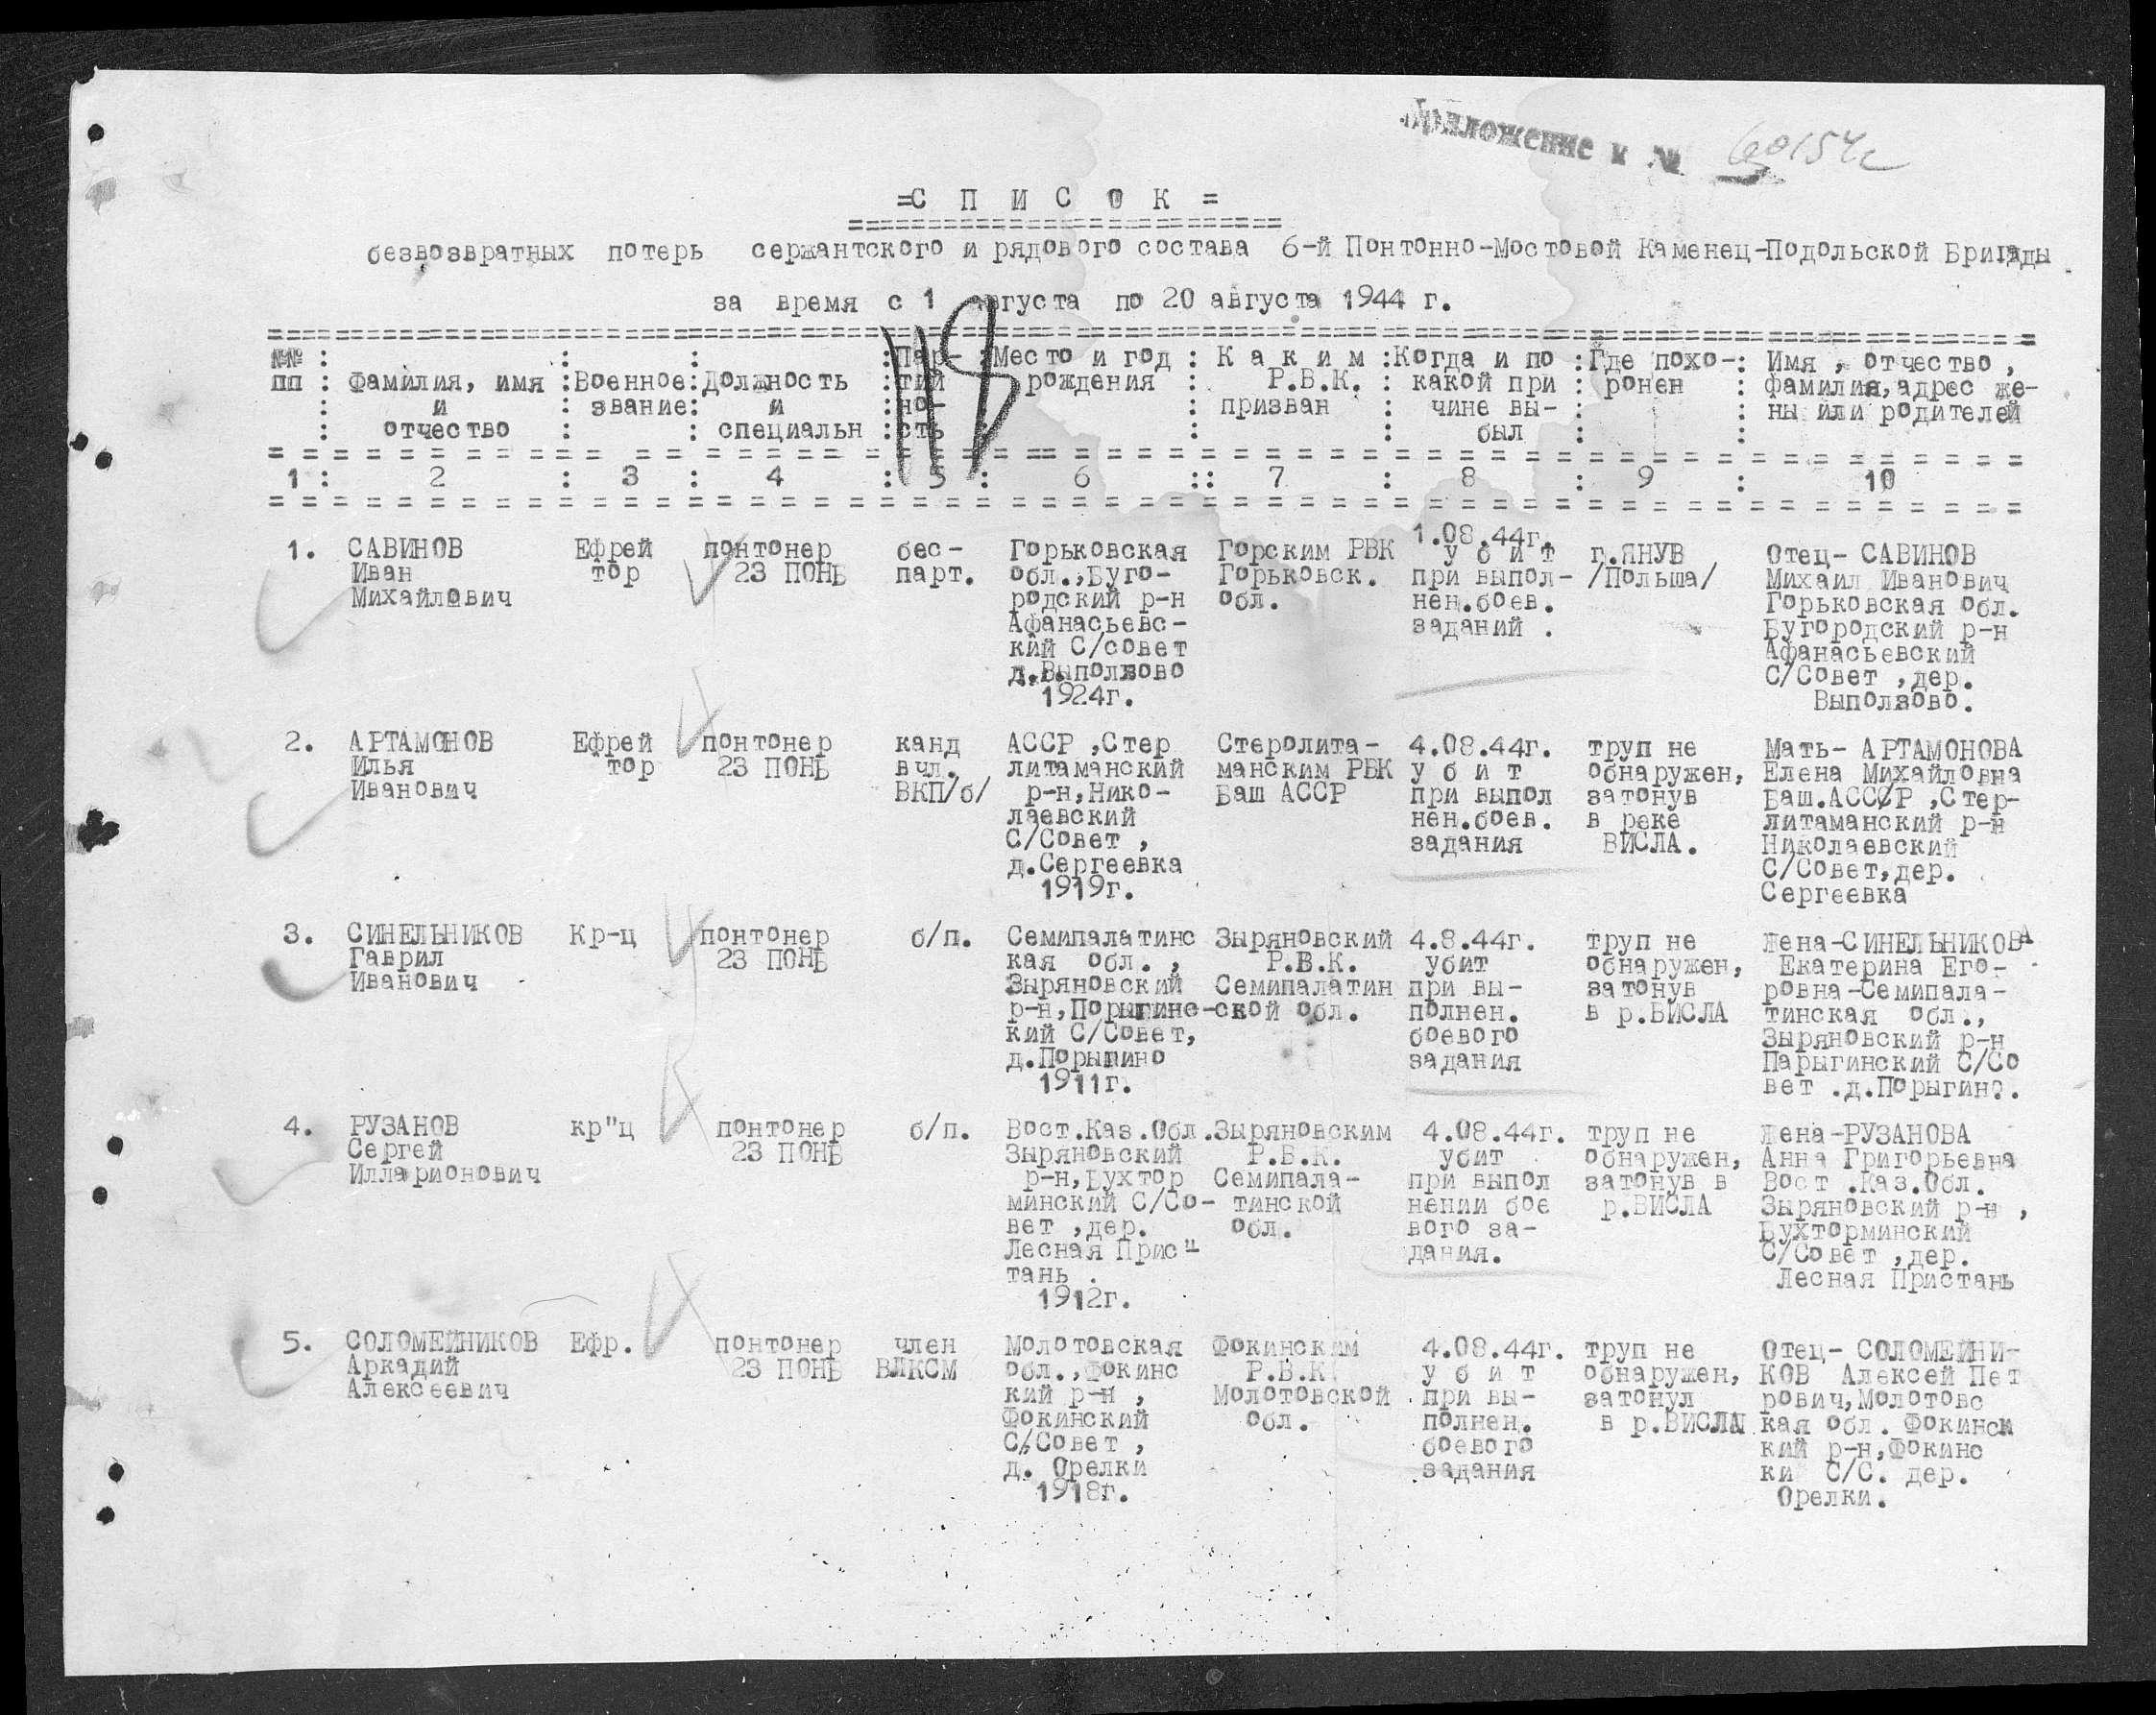 Приложение к № 60154с
=С П И С О К =
безвозвратных потерь сержантского и рядового состава 6-й Понтонно-Мостовой Каменец-Подольской Бригады
за время с 1 августа по 20 августа 1944 г.
118
№№ пп
Фамилия, имя и отчество
Военное звание
Должность и специальн
Пар-тий но-сть
Место и год рождения
К а к и м Р.В.К. призван
Когда и по какой при чине вы-был
Где похо-ронен
Имя , отчество , фамилия, адрес же-ны или родителей
1 : 2 : 3 : 4 : 5 : 6 :: 7 : 8 : 9 : 10
1.
САВИНОВ
Иван
Михайлович
Ефрей
тор
понтонер
23 ПОНБ
бес-
парт.
Горьковская
обл.,Буго-
родский р-н
Афанасьевс-
кий С/совет
д.Выползово
1924г.
Горским РВК
Горьковск.
обл.
1.08.44г.
у б и т
при выпол-
нен.боев.
заданий .
г.ЯНУВ
/Польша/
Отец- САВИНОВ
Михаил Иванович
Горьковская обл.
Бугородский р-н
Афанасьевский
С/Совет ,дер.
Выползово.
2.
АРТАМОНОВ
Илья
Иванович
Ефрей
тор
понтонер
23 ПОНБ
канд
вчл.
ВКП/б/
АССР ,Стер
литаманский
р-н,Нико-
лаевский
С/Совет ,
д.Сергеевка
1919г.
Стеролита-
манским РВК
Баш АССР
4.08.44г.
у б и т
при выпол
нен.боев.
задания
труп не
обнаружен,
затонув
в реке
ВИСЛА.
Мать- АРТАМОНОВА
Елена Михайловна
Баш.АССР ,Стер-
литаманский р-н
Николаевский
С/Совет,дер.
Сергеевка
3.
СИНЕЛЬНИКОВ
Гаврил
Иванович
Кр-ц
понтонер
23 ПОНБ
б/п.
Семипалатинс
кая обл. ,
Зыряновский
р-н,Порыгинс-
кий С/Совет,
д.Порыгино
1911г.
Зыряновский
Р.В.К.
Семипалатин
ской обл.
4.8.44г.
убит
при вы-
полнен.
боевого
задания
труп не
обнаружен,
затонув
в р.ВИСЛА
Жена-СИНЕЛЬНИКОВА
Екатерина Его-
ровна-Семипала-
тинская обл.,
Зыряновский р-н
Парыгинский С/Со
вет .д.Порыгино.
4.
РУЗАНОВ
Сергей
Илларионович
кр"ц
понтонер
23 ПОНБ
б/п.
Вост.Каз.Обл.
Зыряновский
р-н,Бухтор
минский С/Со-
вет ,дер.
Лесная Прис-
тань .
1912г.
Зыряновским
Р.В.К.
Семипала-
тинской
обл.
4.08.44г.
убит
при выпол
нении бое
вого за-
дания.
труп не
обнаружен,
затонув в
р.ВИСЛА
Жена-РУЗАНОВА
Анна Григорьевна
Вост .Каз.Обл.
Зыряновский р-н ,
Бухторминский
С/Совет ,дер.
Лесная Пристань
5.
СОЛОМЕЙНИКОВ
Аркадий
Алексеевич
Ефр.
понтонер
23 ПОНБ
член
ВЛКСМ
Молотовская
обл.,Фокинс
кий р-н ,
Фокинский
С/Совет ,
д. Орелки
1918г.
Фокинским
Р.В.К.
Молотовской
обл.
4.08.44г.
у б и т
при вы-
полнен.
боевого
задания
труп не
обнаружен,
затонул
в р.ВИСЛА
Отец- СОЛОМЕЙНИ-
КОВ Алексей Пет
рович,Молотовс
кая обл. Фокинск
кий р-н,Фокинс
ки С/С. дер.
Орелки.